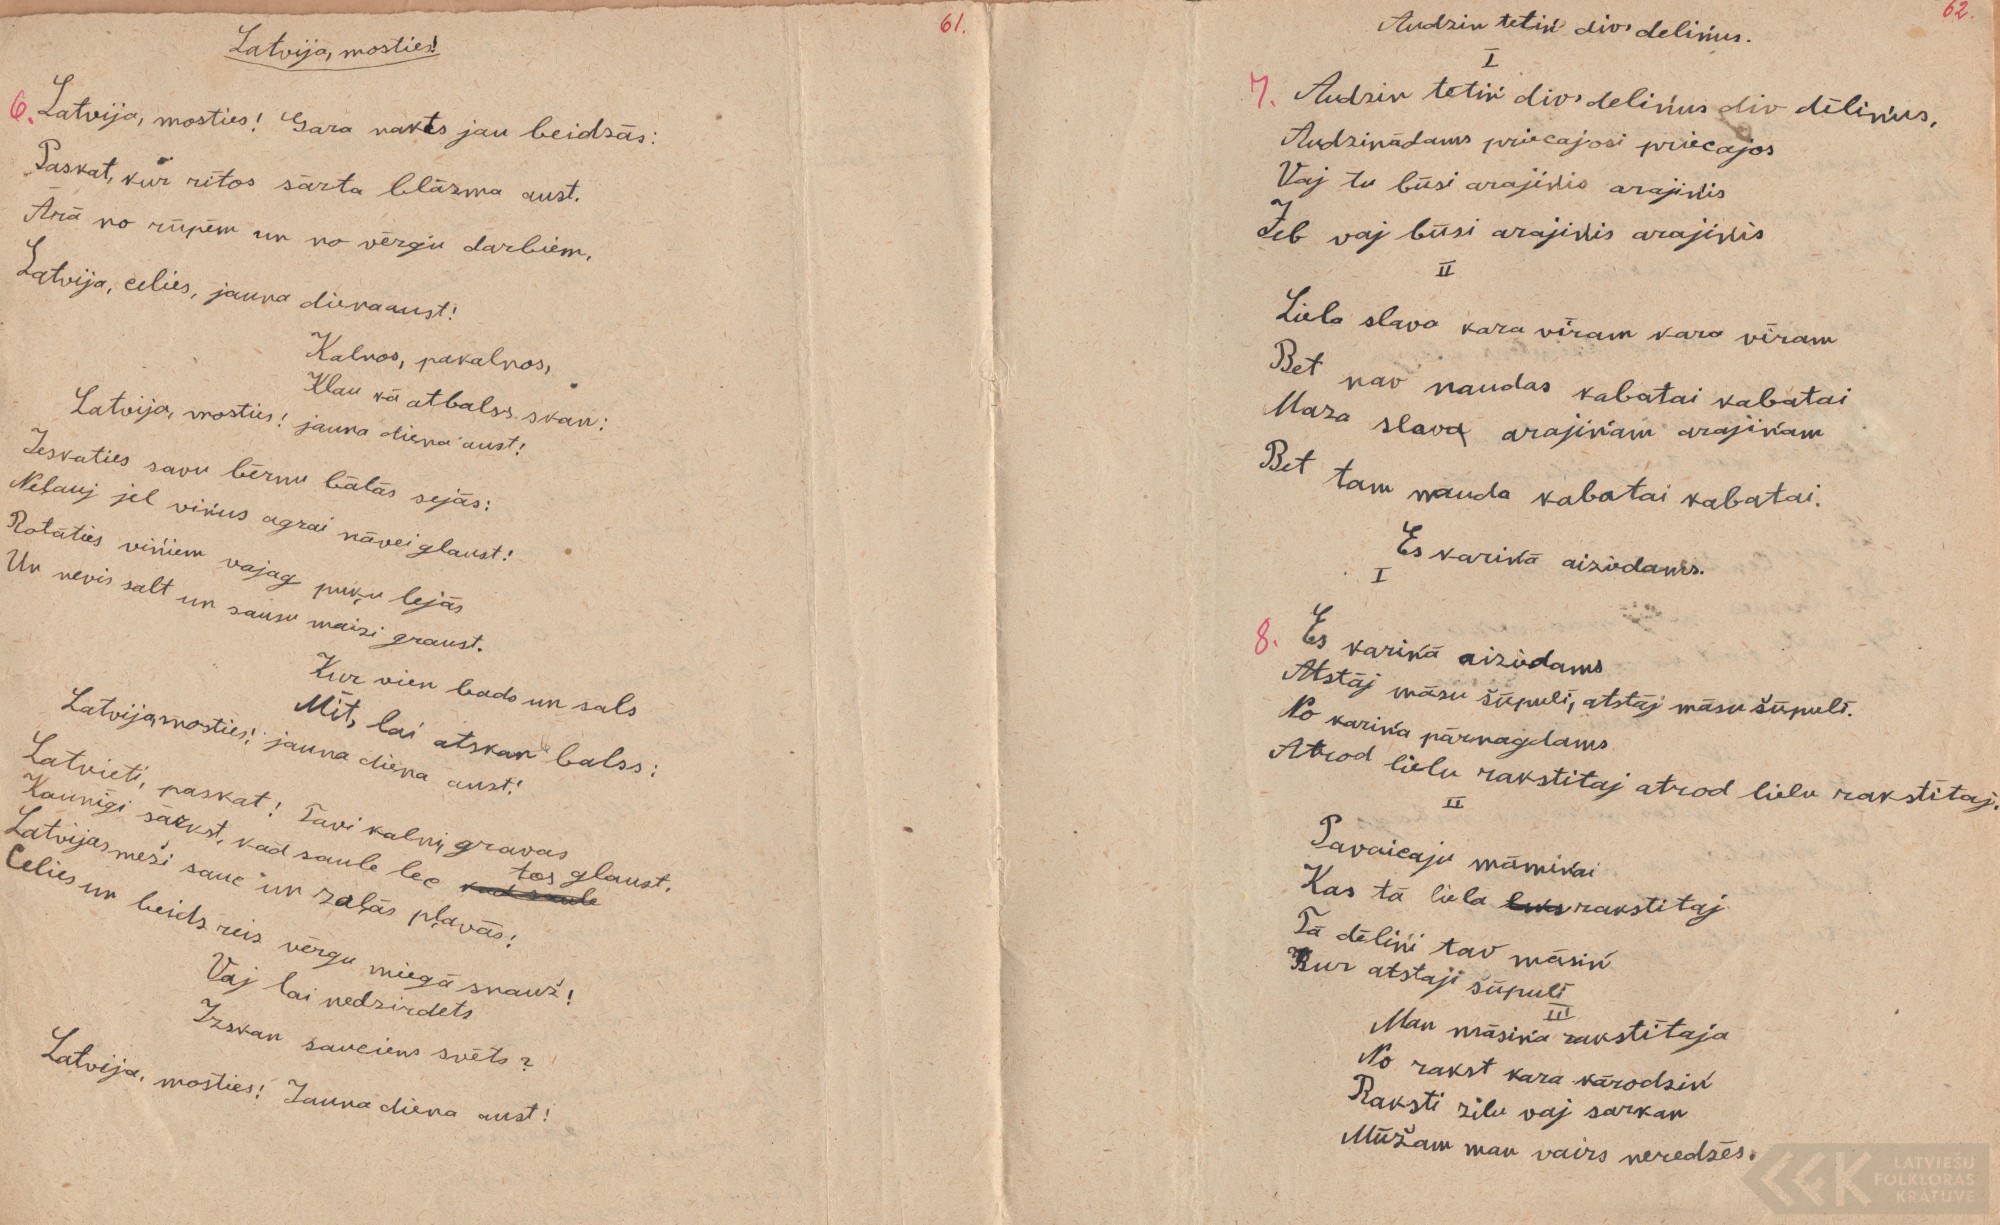 61.
Latvija, mosties!
6. Latvija, mosties! Gara nakts jau beidzās:
Paskat, kur rītos sārta blāzma aust.
Ārā no rūpēm un no vērgu darbiem,
Latvija, celies, jauna diena aust!
Kalnos, pakalnos,
Klau kā atbalss skan:
Latvija, mosties! jauna diena aust!
Ieskaties savu bērnu bālās sejās:
Neļauj jel viņus agrai nāvei glaust!
Rotaties viņiem vajag puķu lejās
Un nevis salt un sausu maizi graust.
Kur vien bads un sals
Mīt, lai atskan balss:
Latvija, mosties! jauna diena aust!
Latvieti, paskat! Tavi kalni, gravas
Kaunīgi sārkst, kad saule lec tos glaust.
Latvijas meži sauc un zaļās pļavās!
Celies un beidz reiz vērgu miegā snaust!
Vaj lai nedzirdets
Izskan sauciens svēts?
Latvija, mosties! Jauna diena aust!
62.
Audzin tetiń div' delińus.
I
7. Audzin tetiń div' delińus div dēlińus,
Audzinādams priecajosi priecajos
Vaj tu būsi arajińis arajińis
Jeb vaj būsi arajińis arajińis
II
Liela slava kara vīram kara vīram
Bet nav naudas kabatai kabatai
Maza slava arajińam arajińam
Bet tam nauda kabatai kabatai.
Es karińā aizīdams.
I
8. Es karińā aizīdams
Atstāj māsu šūpulī, atstāj māsu šūpulī.
No karińa pārnagdams
Atrod lielu rakstītaj atrod lielu rakstītaj.
II
Pavaicaju māmińai
Kas tā liela rakstītaj
Tā dēlińi tav māsiń
Kur atstaji šūpulī
III
Man māsińa rakstītaja
No rakst kara kārodziń
Raksti zilu vaj sarkan
Mūžam man vairs neredzēs.
LATVIEŠU
FOLKLORAS
KRĀTUVE